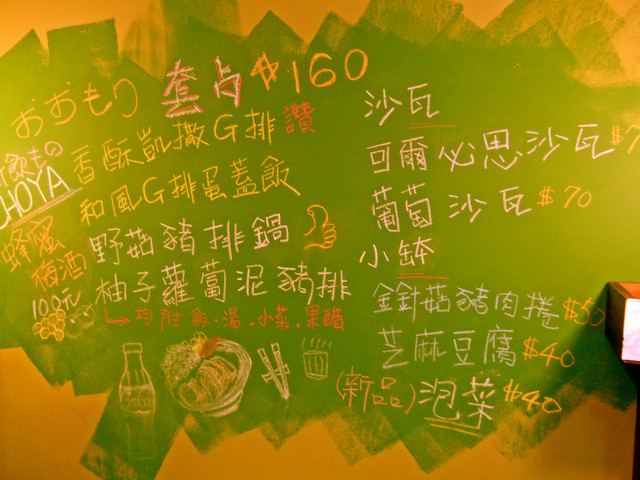 おおもり 套占 $160
香酥凱撒G排讚
和風G排蛋蓋飯
野菇豬排鍋
柚子蘿蔔泥豬排
均附飯.湯.小菜.果醋
飲もの
CHOYA
蜂蜜
梅酒
100元
沙瓦
可爾必思沙瓦
葡萄沙瓦 $70
小缽
金針菇豬肉捲 $50
芝麻豆腐 $40
(新品)泡菜 $40